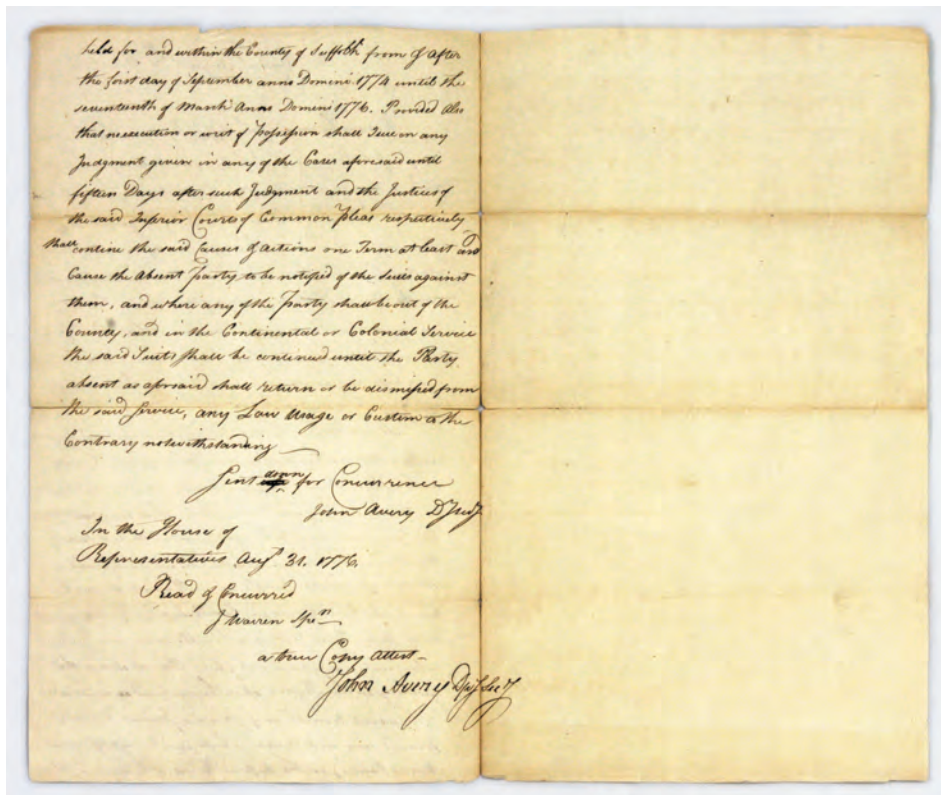 held for and within the County of Suffolk from & after
the first day of September anno Domini 1774 until the
seventeenth of March Anno Domini 1776. Provided Also
that no execution or writ of Possession shall Issue on any
Judgment given in any of the Cases aforesaid until
fifteen Days after such Judgment and the Justices of
the said Inferior Courts of Common Pleas respectively
shall contine the said Causes of actions one Term at least and
Cause the Absent party to be notified of the suits against
them, and where any of the party shall be out of the
County, and in the Continental or Colonial Service
the said Suits shall be continued until the Party
absent as aforsaid shall return or be dismissed from
the said Service, any Law Usage or Custom to the
Contrary notwithstanding
Sent down for Concurrence
John Avery Dy Secy
In the House of
Representatives Augt 31. 1776.
Read & Concurred
J Warren Spkn
a true Copy Attest
John Avery Dpy Secy